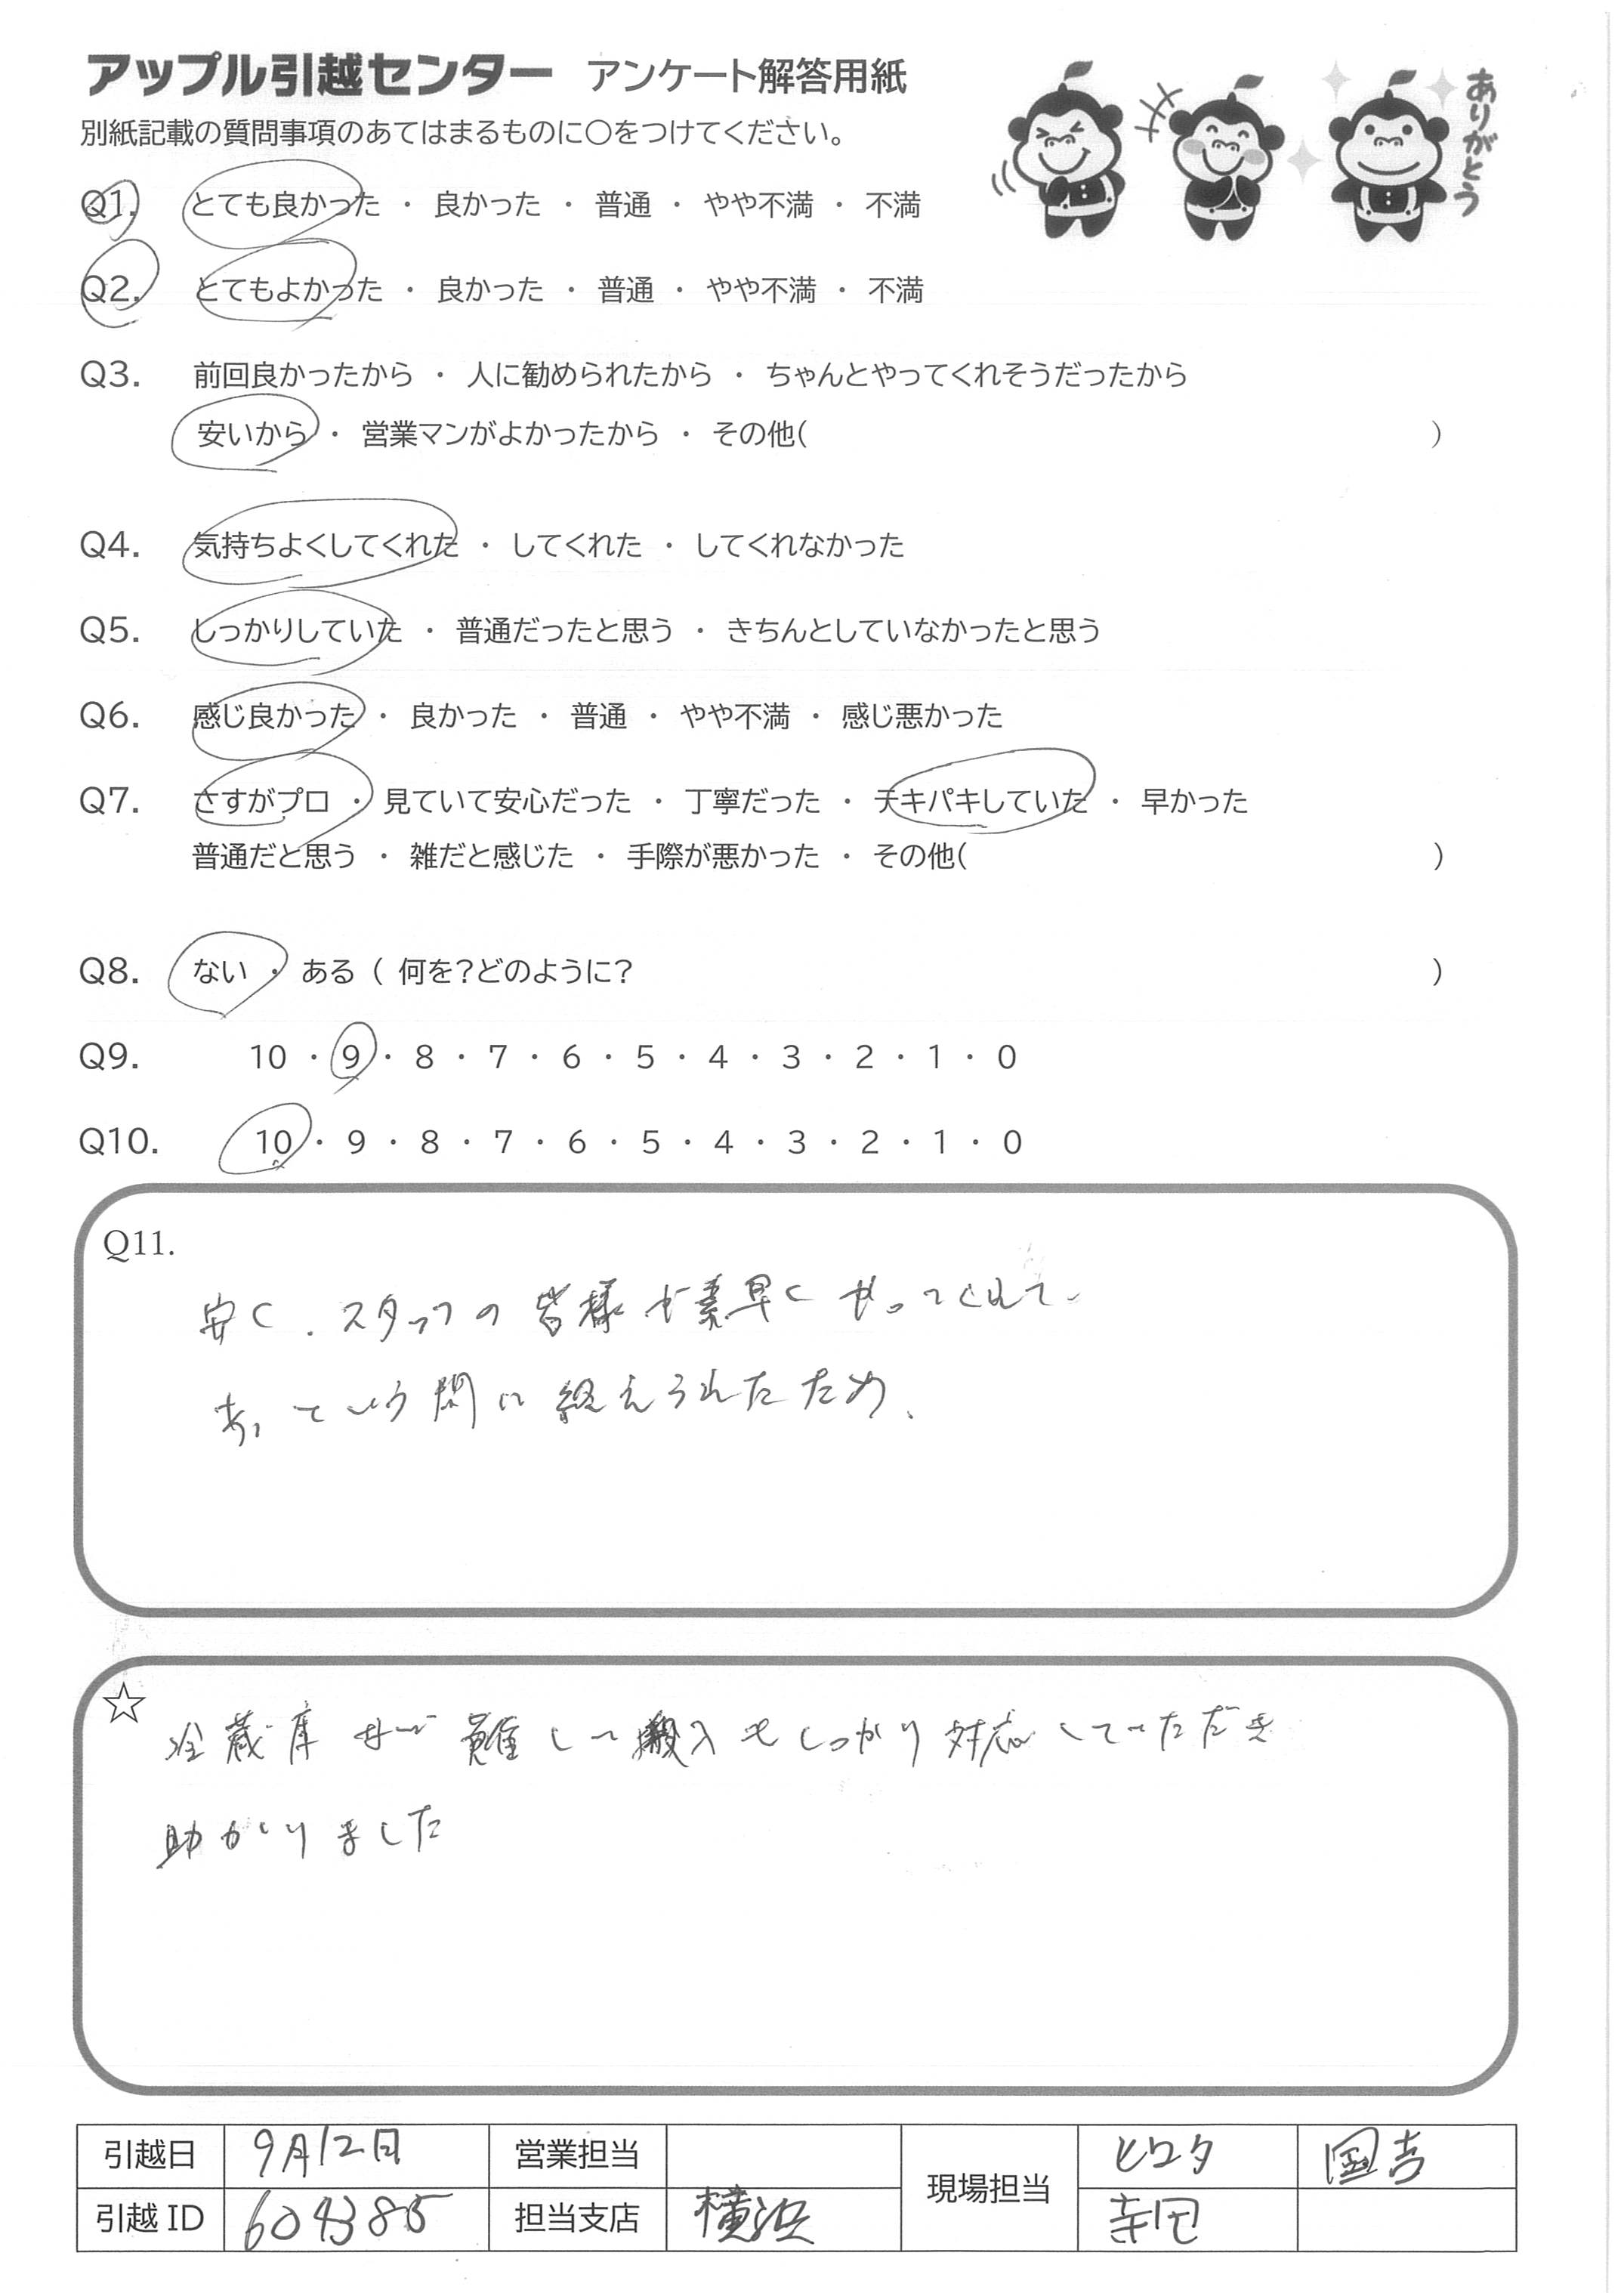 アップル引越センター アンケート解答用紙
ありがとう
別紙記載の質問事項のあてはまるものに〇をつけてください。
Q1. とても良かった ・ 良かった ・ 普通 ・ やや不満 ・ 不満
Q2. とてもよかった ・ 良かった ・ 普通 ・ やや不満 ・ 不満
Q3. 前回良かったから ・ 人に勧められたから ・ ちゃんとやってくれそうだったから
安いから ・ 営業マンがよかったから ・ その他( )
Q4. 気持ちよくしてくれた ・ してくれた ・ してくれなかった
Q5. しっかりしていた ・ 普通だったと思う ・ きちんとしていなかったと思う
Q6. 感じ良かった ・ 良かった ・ 普通 ・ やや不満 ・ 感じ悪かった
Q7. さすがプロ ・ 見ていて安心だった ・ 丁寧だった ・ テキパキしていた ・ 早かった
普通だと思う ・ 雑だと感じた ・ 手際が悪かった ・ その他( )
Q8. ない ・ ある ( 何を?どのように? )
Q9. 10 ・ 9 ・ 8 ・ 7 ・ 6 ・ 5 ・ 4 ・ 3 ・ 2 ・ 1 ・ 0
Q10. 10 ・ 9 ・ 8 ・ 7 ・ 6 ・ 5 ・ 4 ・ 3 ・ 2 ・ 1 ・ 0
Q11.
安く、スタッフの皆様が素早くやってくれて、
あっという間に終えられたため、
☆
冷蔵庫など難しい搬入もしっかり対応していただき
助かりました
引越日 9月12日 営業担当 現場担当 ヒロタ 国吉
引越ID 604385 担当支店 横浜 寺田